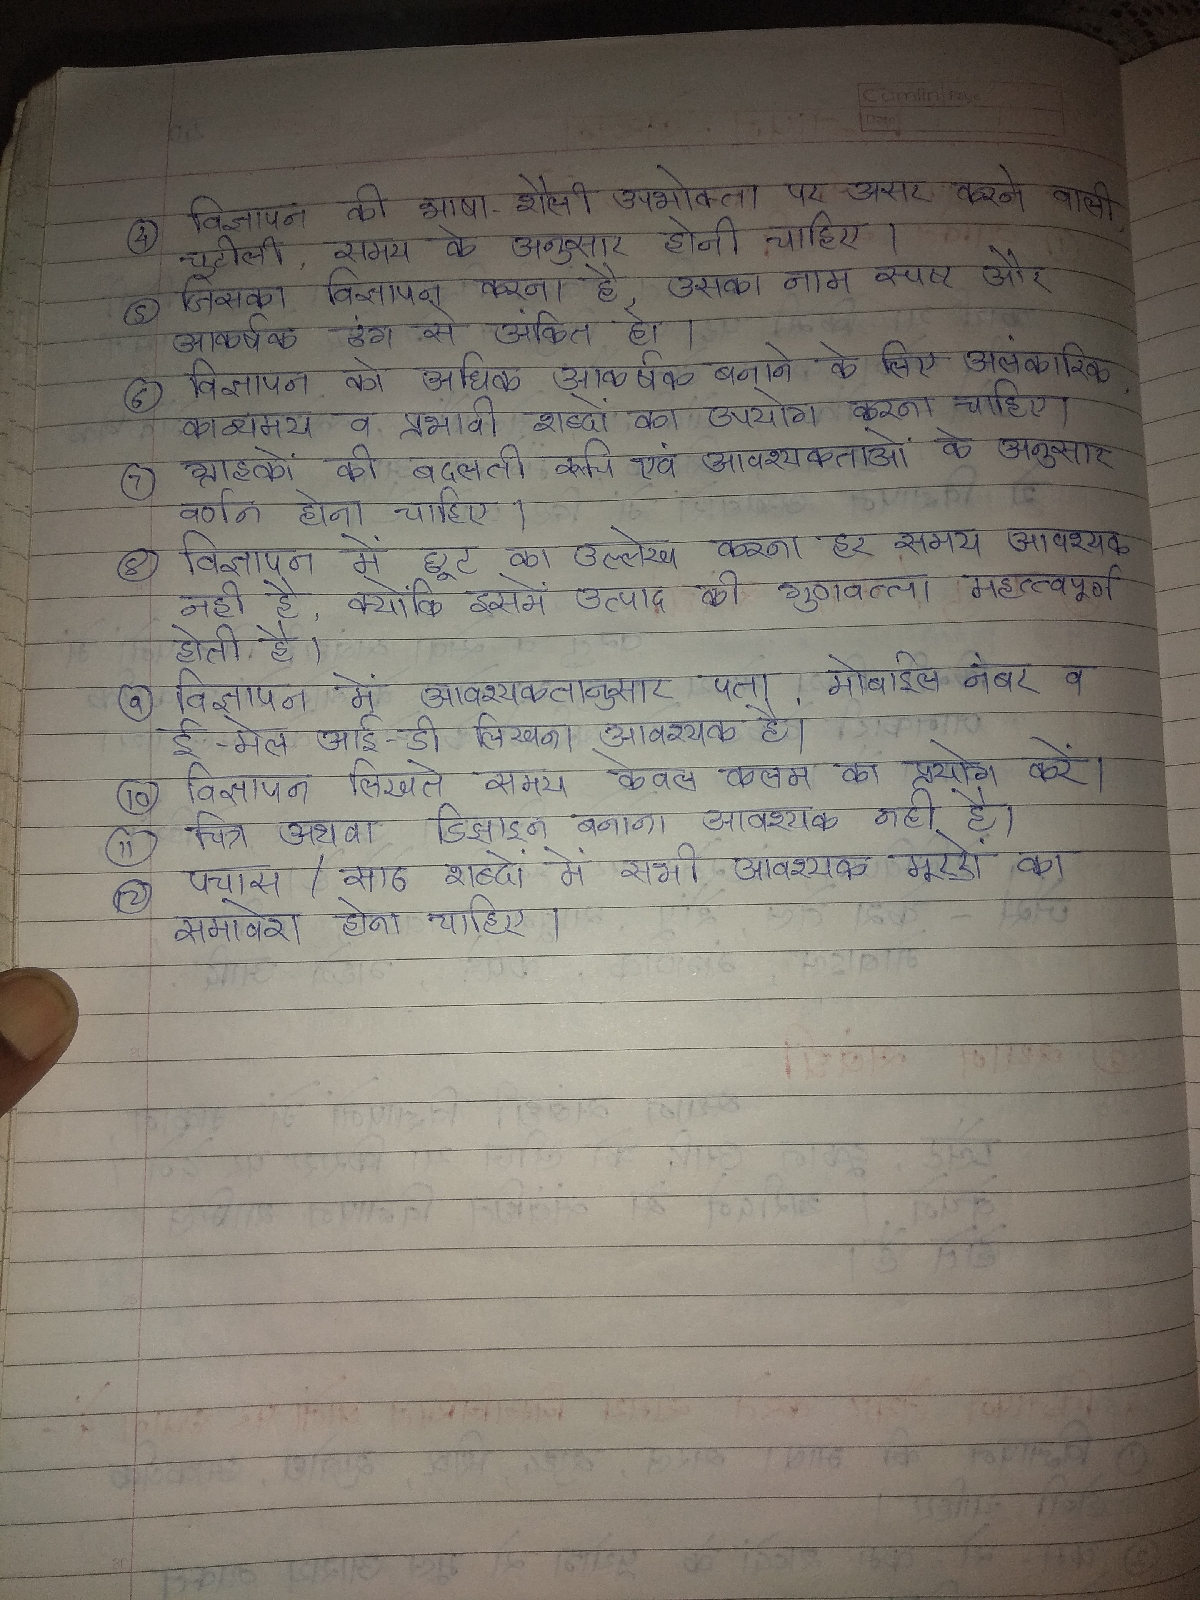 Camlin Page
④ विज्ञापन की भाषा-शैली उपभोक्ता पर असर करने वाली,
चुटीली, समय के अनुसार होनी चाहिए।
⑤ जिसका विज्ञापन करना है, उसका नाम स्पष्ट और
आकर्षक ढंग से अंकित हो।
⑥ विज्ञापन को अधिक आकर्षक बनाने के लिए अलंकारिक,
काव्यमय व प्रभावी शब्दों का उपयोग करना चाहिए।
⑦ ग्राहकों की बदलती रूचि एवं आवश्यकताओं के अनुसार
वर्णन होना चाहिए।
⑧ विज्ञापन में छूट का उल्लेख करना हर समय आवश्यक
नही है, क्योंकि इसमें उत्पाद की गुणवत्ता महत्त्वपूर्ण
होती है।
⑨ विज्ञापन में आवश्यकतानुसार पता, मोबाईल नंबर व
ई-मेल आई-डी लिखना आवश्यक है।
⑩ विज्ञापन लिखते समय केवल कलम का प्रयोग करें।
⑪ चित्र अथवा डिझाइन बनाना आवश्यक नही है।
⑫ पचास / साठ शब्दों में सभी आवश्यक मूद्दों का
समावेश होना चाहिए।